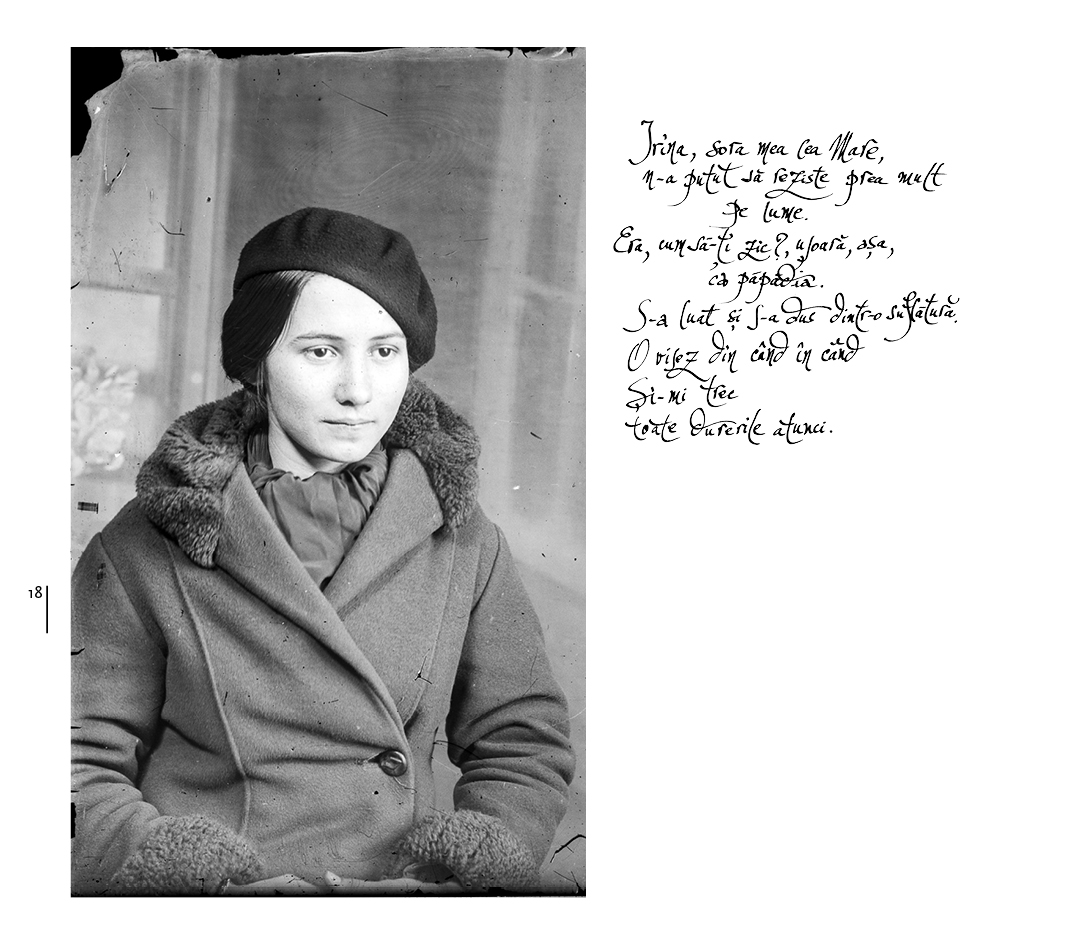 Irina, sora mea cea Mare,
n-a putut să reziste prea mult
pe lume.
Era, cum să-ți zic?, ușoară, așa,
ca păpădia.
S-a luat și s-a dus dintr-o suflătură.
O visez din când în când
Și-mi trec
toate durerile atunci.
18